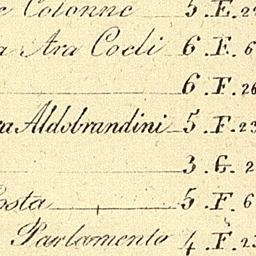 Colonne 5.E.2
Ara Coeli 6.F.6
6.F.26
Aldobrandini 5.F.23
3.G.2
5.F.6
Parlamento 4.F.23